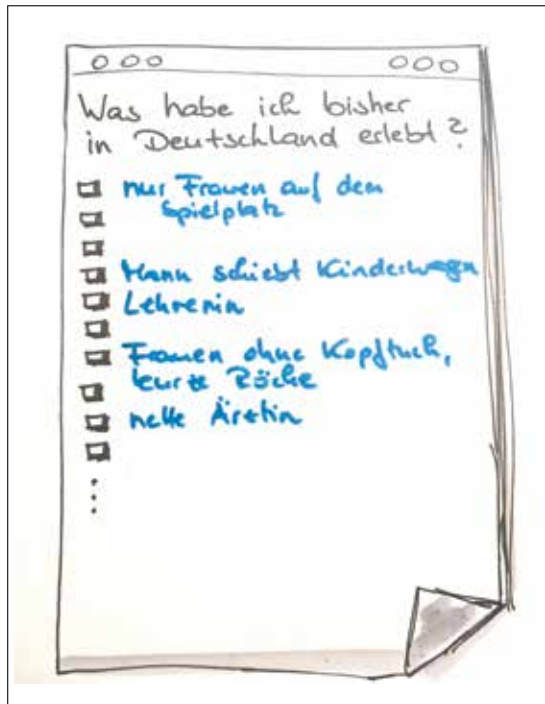 Was habe ich bisher
in Deutschland erlebt?
nur Frauen auf dem
Spielplatz
Mann schiebt Kinderwagen
Lehrerin
Frauen ohne Kopftuch,
kurze Röcke
nette Ärztin
...